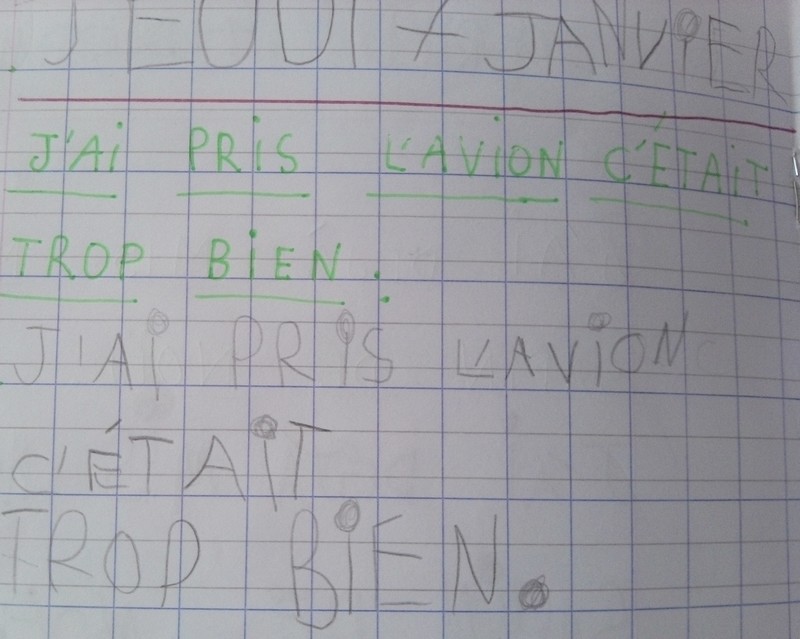 JEUDI 7 JANViER
J'Ai PRiS L'AViON C'ÉTAiT
TROP BiEN.
J'Ai PRiS L'AViON
C'ÉTAiT
TROP BiEN.